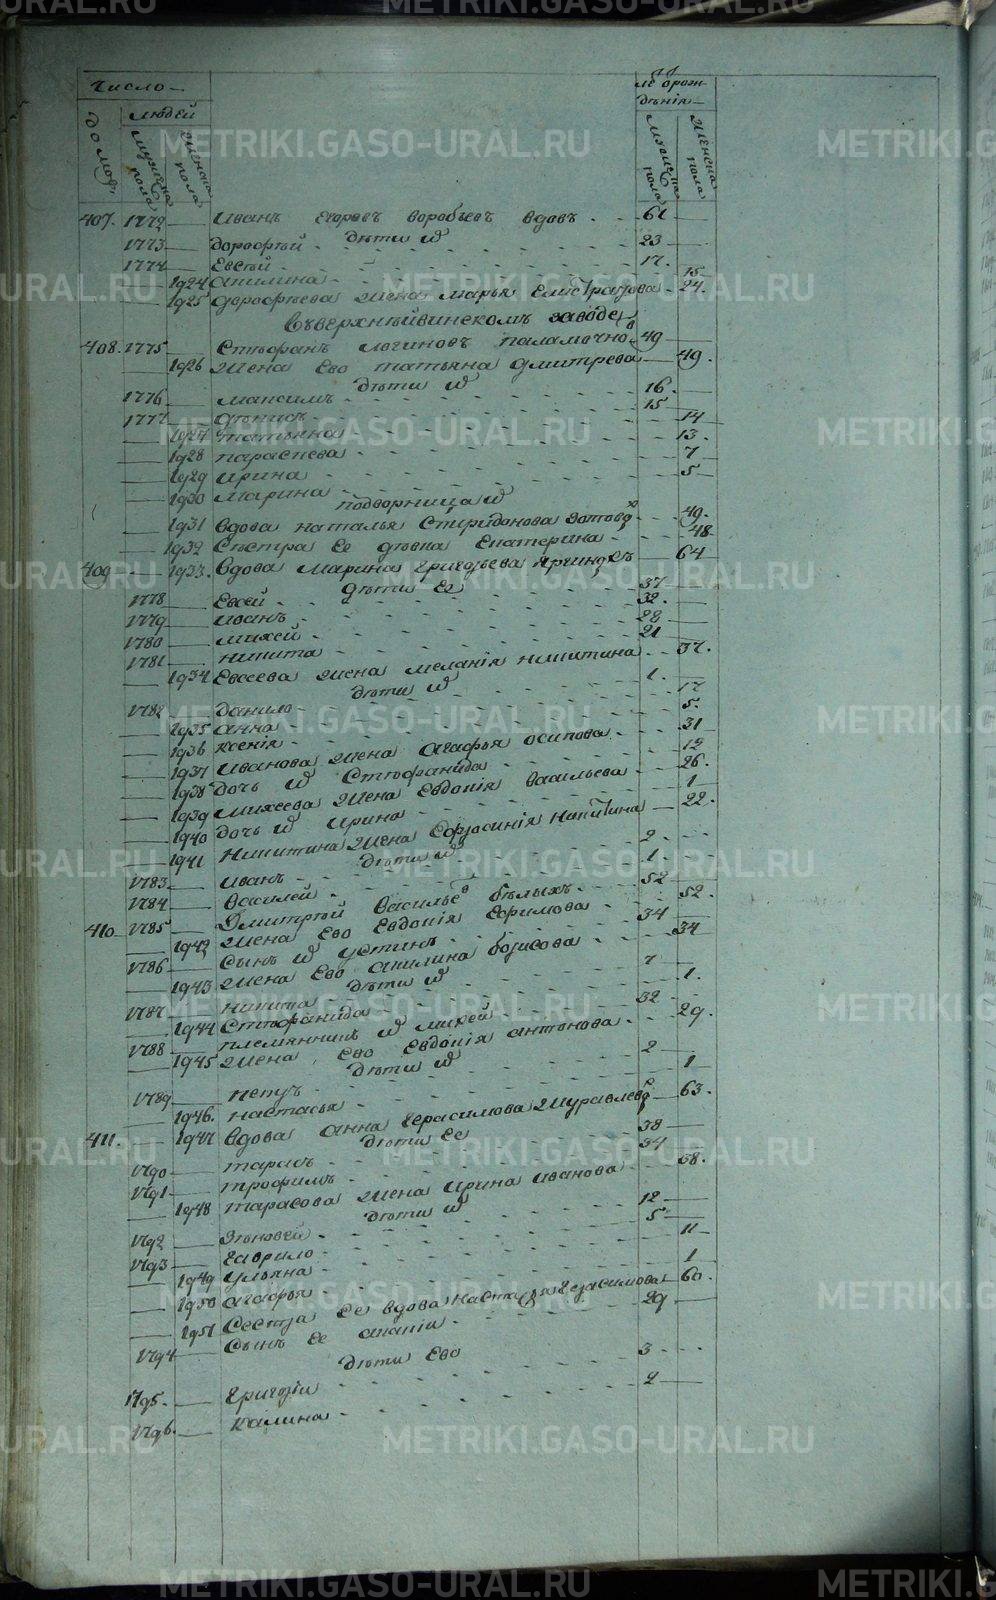 Число
людей
домофъ
мужеска пола
женска пола
лѣ ѿ рож
дѣнія
мужеска пола
женска пола
407. 1772 Иванъ Егоровъ Воробьевъ вдовъ 61
дѣти ѿ
1773 Дорофѣй 23
1774 Евсѣй 17.
1924 Апилина 15
1925 Дорофѣева жена Марья Елистратова 24.
Въ Верхнѣйвинскомъ заводе
408. 1775 Стѣфанъ Логиновъ Паламочно 49
1926 Жена Ево Татьяна Дмитрева 49.
дѣти ѿ
1776 Максимъ 16.
1777 Дѣнисъ 15
1927 Татьяна 14
1928 Параскева 13.
1929 Ирина 7
1930 Марина 5
подворница ѿ
1931 Вдова Наталья Спиридонова Зотова 49.
1932 Сѣстра Ее дѣвка Екатерина 48
409 1933. Вдова Марина Григорьева 64
дѣти Ее
1778 Евсей 37
1779 Иванъ 32.
1780 Михей 28
1781 Никита 21
1934 Евсеева жена Меланія Никитина 37.
дѣти ѿ
1782 Данило 1.
1935 Анна 17
1936 Ксенія 5.
1937 Иванова жена Агафья Осипова 31
1938 Дочь ѿ Стѣфанида 12
1939 Михеева жена Евдокія Васильева 26.
1940 Дочь ѿ Ирина 1
1941 Никитина жена Ефросинія Никитина 22.
дѣти ѿ
1783 Иванъ 2.
1784 Василей 1.
410 1785 Дмитрѣй Васильевъ Бѣлыхъ 52
1942 Жена Ево Евдокія Ефимова 52.
1786 Сынъ ѿ Устинъ 34
1943 Жена Ево Апилина Борисова 34
дѣти ѿ
1787 Никита 7
1944 Стѣфанида 1.
1788 племянникъ ѿ Михей 32
1945 Жена Ево Евдокія Антонова 29.
дѣти ѿ
1789 Петръ 2
1946. Настасья 1
411. 1947 Вдова Анна Герасимова Журавлева 63.
дѣти Ее
1790 Тарасъ 38
1791 Трофимъ 34
1948 Тарасова жена Ирина Иванова 38.
дѣти ѿ
1792 Зѣновей 12
1793 Гаврило 5
1949 Ульяна 11
1950 Агафья 1
1951 Сестра Ее вдова Настасья Герасимова 60.
1794 Сынъ Ее Ананiи 29
дѣти Ево
1795. Григорiи 3
1796. Калина 2